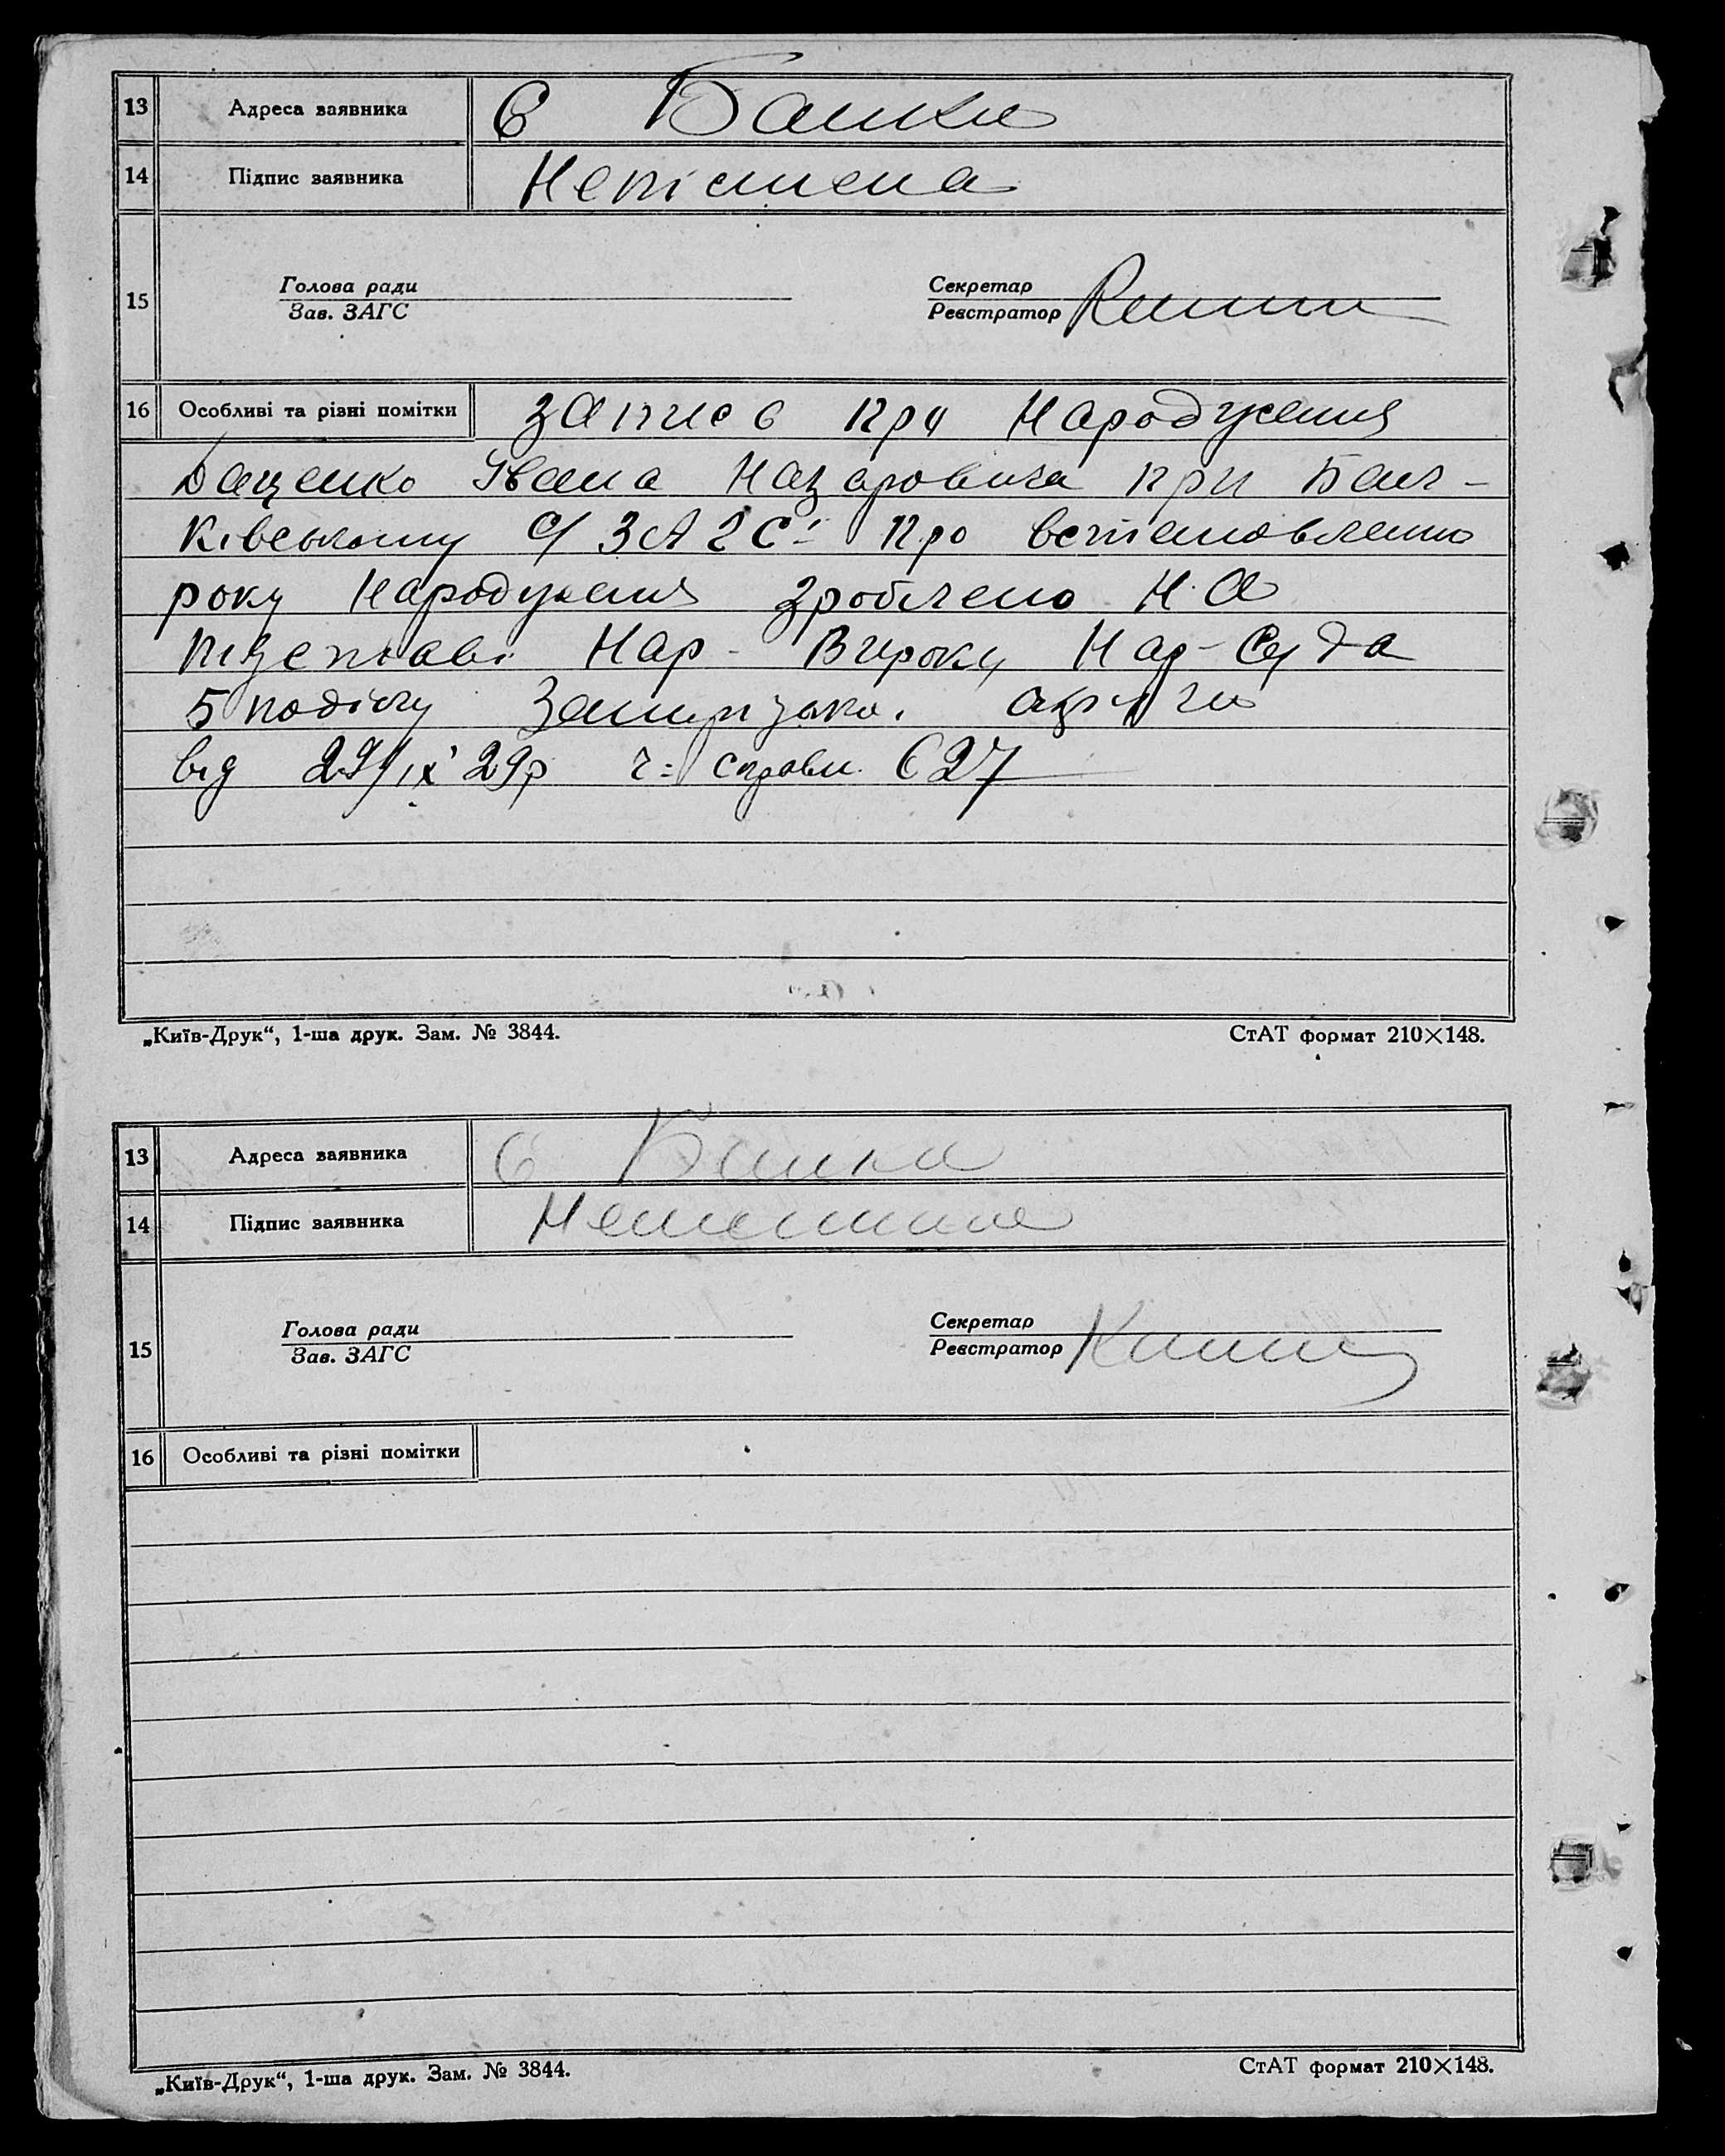 13 Адреса заявника С Банки
14 Підпис заявника Непісмена
15 Голова ради
Зав. ЗАГС
Секретар
Реєстратор
16 Особливі та різні помітки запис про Народження
Даценко Івана Назаровича при Бан-
ківському с/ ЗАГСі про встановленню
року Народження зроблено НА
підставі Нар- Вироку Нар-Суда
5 поділу
від 29/ІХ 29р ч= справи 627
„Київ-Друк“, 1-ша друк. Зам. № 3844. СтАТ формат 210×148.
13 Адреса заявника С Банки
14 Підпис заявника
15 Голова ради
Зав. ЗАГС
Секретар
Реєстратор
16 Особливі та різні помітки
„Київ-Друк“, 1-ша друк. Зам. № 3844. СтАТ формат 210×148.